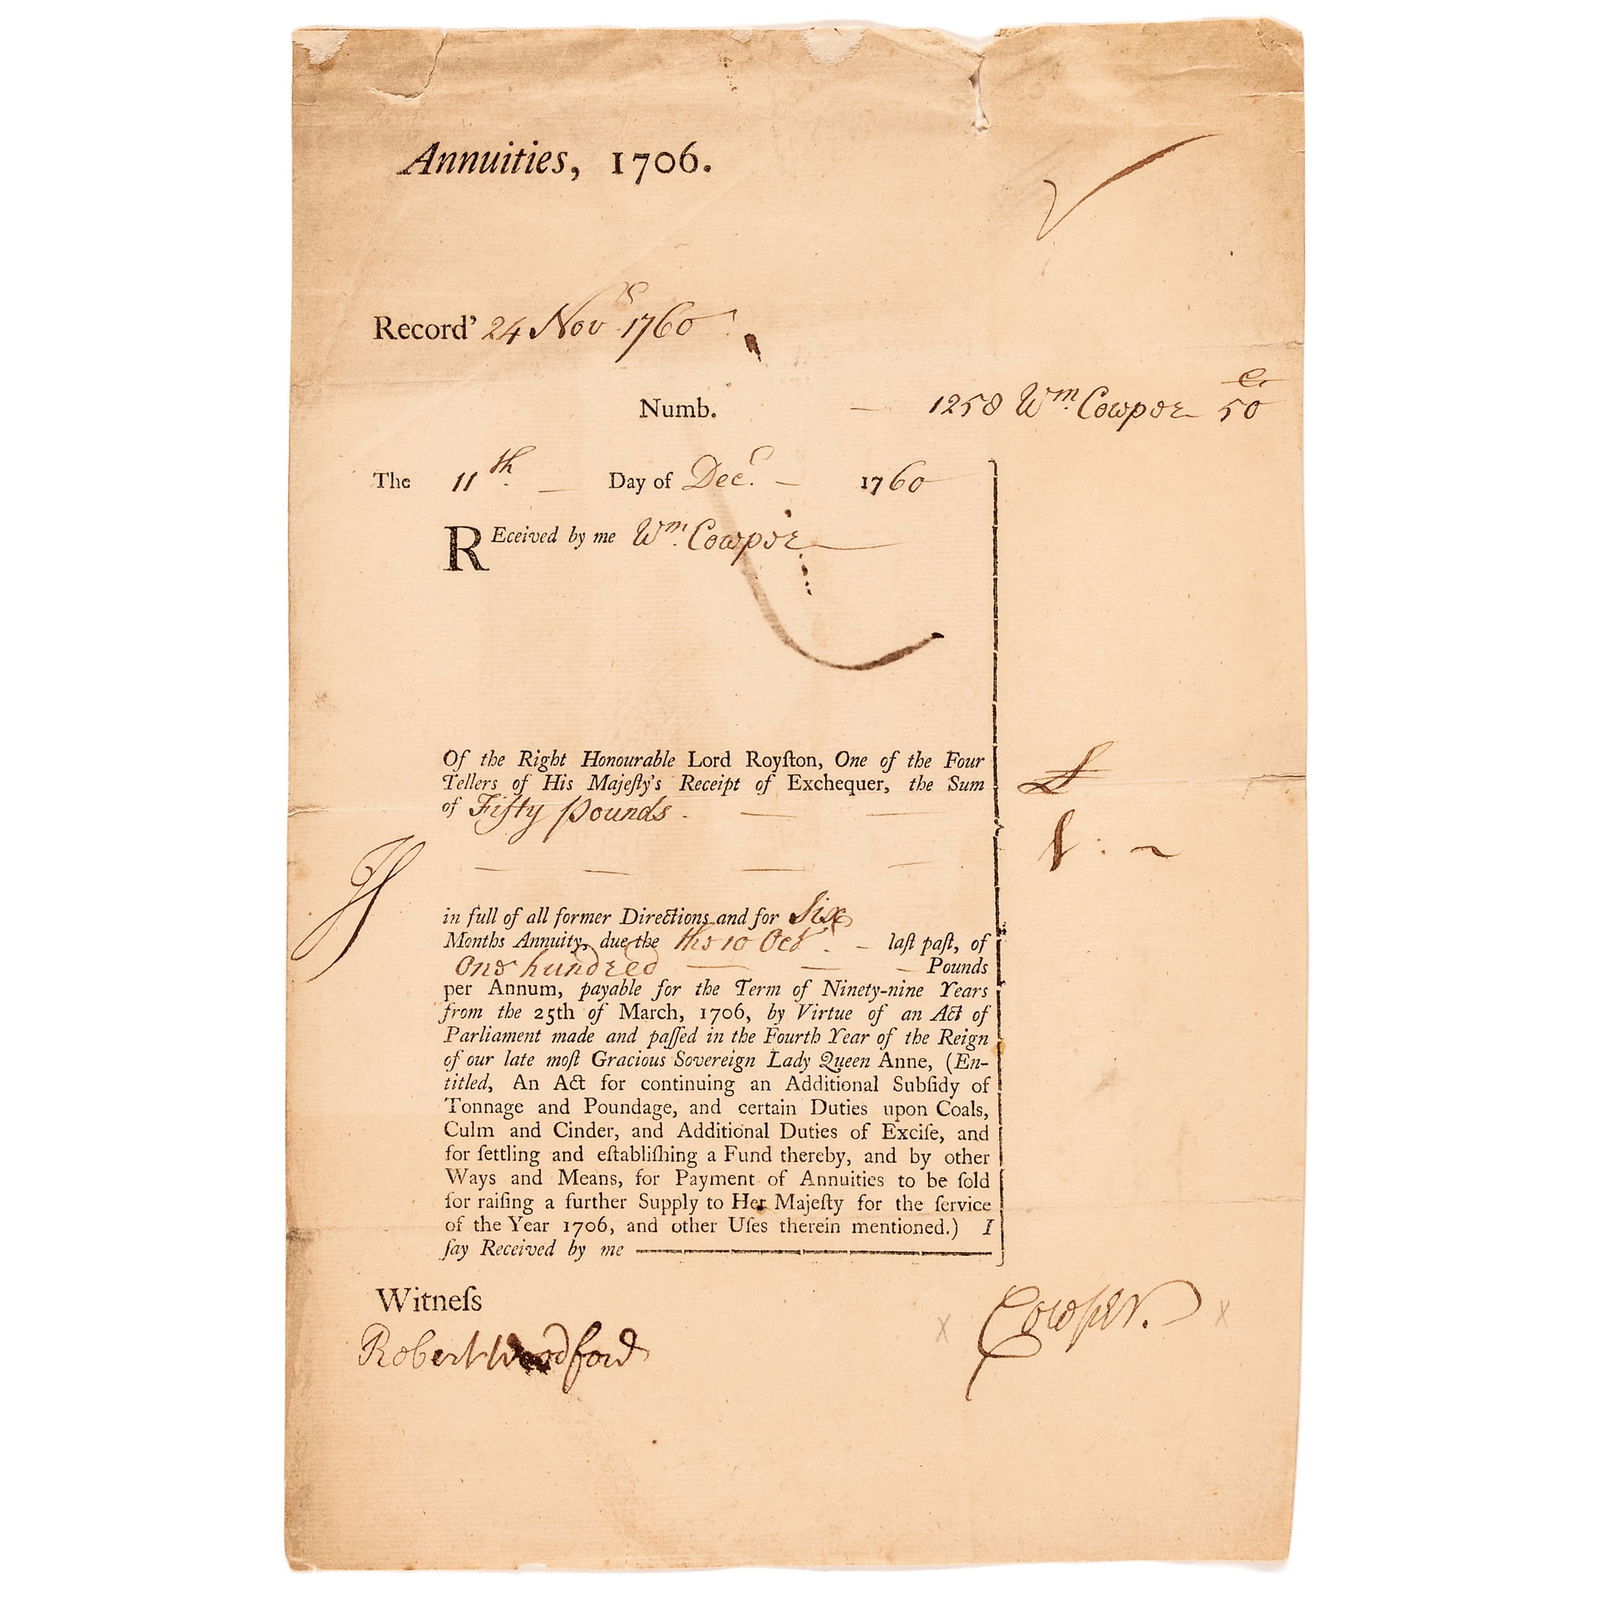 Annuities, 1706.
Record' 24 Novr 1760
Numb. — 1258 Wm. Cowper 50
The 11th. — Day of Decr. — 1760
REceived by me Wm. Cowper
Of the Right Honourable Lord Royſton, One of the Four
Tellers of His Majeſty's Receipt of Exchequer, the Sum
of Fifty pounds. — —
in full of all former Directions and for Six
Months Annuity, due the the 10 Octr. — laſt paſt, of
One hundred — — — Pounds
per Annum, payable for the Term of Ninety-nine Years
from the 25th of March, 1706, by Virtue of an Act of
Parliament made and paſſed in the Fourth Year of the Reign
of our late moſt Gracious Sovereign Lady Queen Anne, (En-
titled, An Act for continuing an Additional Subſidy of
Tonnage and Poundage, and certain Duties upon Coals,
Culm and Cinder, and Additional Duties of Exciſe, and
for ſettling and eſtabliſhing a Fund thereby, and by other
Ways and Means, for Payment of Annuities to be ſold
for raiſing a further Supply to Her Majeſty for the ſervice
of the Year 1706, and other Uſes therein mentioned.) I
ſay Received by me
Witneſs
Cowper.
Robert Woodford